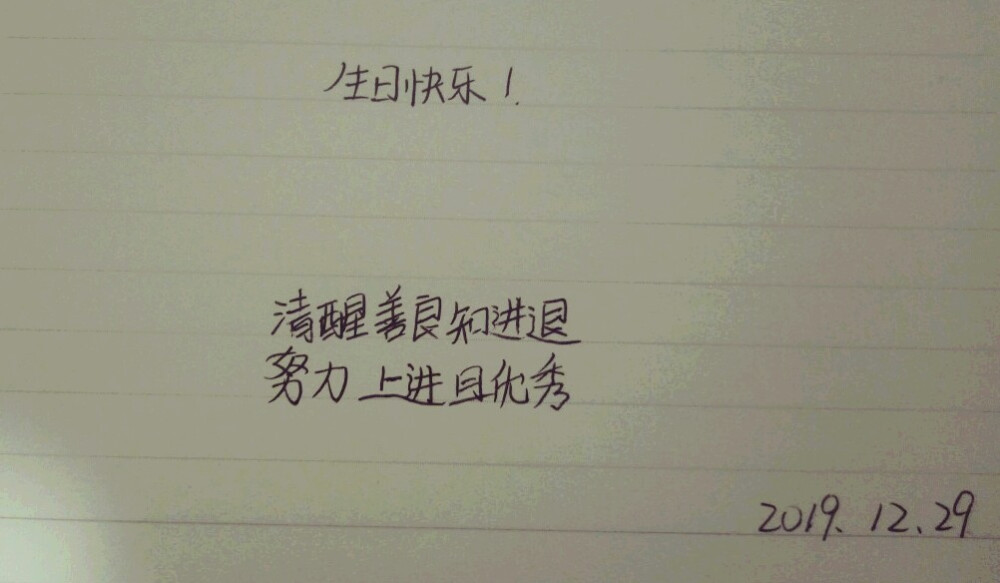 生日快乐！
清醒善良知进退
努力上进且优秀
2019.12.29